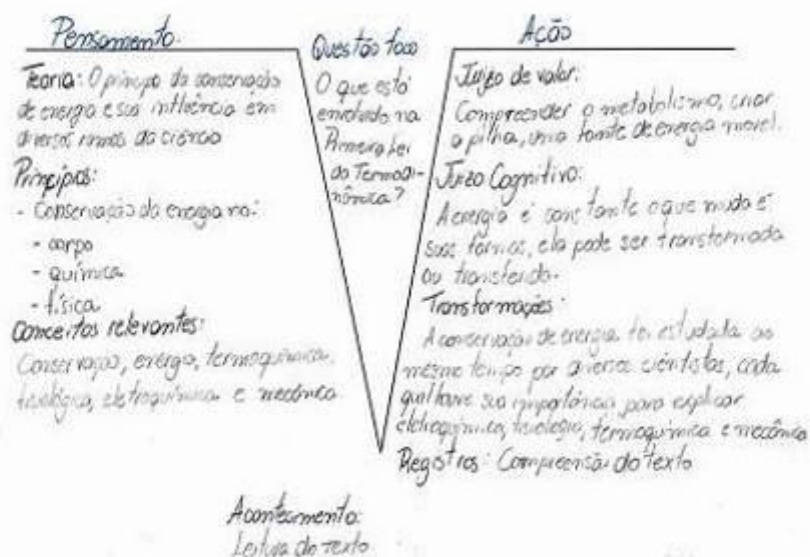 Pensamento
Teoria: O princípio da conservação
de energia e sua influência em
diversos ramos da ciência
Princípios:
- Conservação da energia no:
- corpo
- química
- física
Conceitos relevantes:
Conservação, energia, termoquímica,
fisiológica, eletroquímica e mecânica
Questão foco
O que está
envolvido na
Primeira Lei
da Termodi-
nâmica?
Ação
Juízo de valor:
Compreender o metabolismo, criar
a pilha, uma fonte de energia móvel.
Juízo Cognitivo:
A energia é constante o que muda é
suas formas, ela pode ser transformada
ou transferida.
Transformações:
A conservação de energia foi estudada ao
mesmo tempo por diversos cientistas, cada
qual teve sua importância para explicar
eletroquímica, fisiologia, termoquímica e mecânica
Registros: Compreensão do texto
Acontecimento:
Leitura do texto